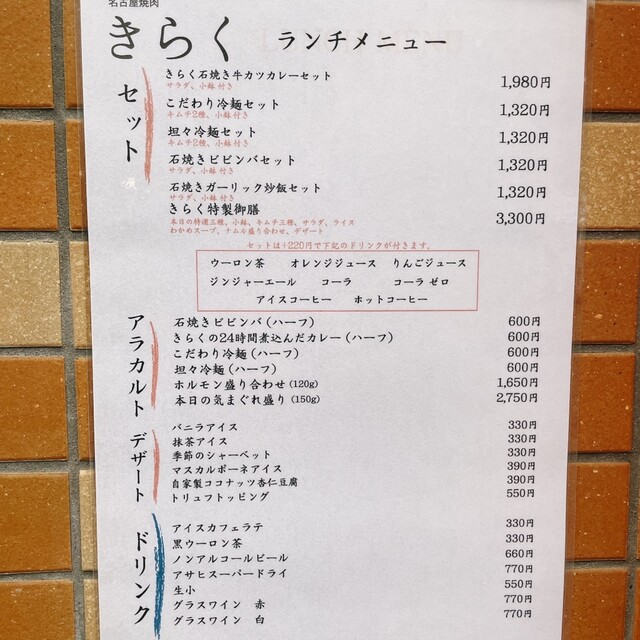 名古屋焼肉
きらく ランチメニュー
セット
きらく石焼き牛カツカレーセット 1,980円
サラダ、小鉢付き
こだわり冷麺セット 1,320円
キムチ2種、小鉢付き
坦々冷麺セット 1,320円
キムチ2種、小鉢付き
石焼きビビンバセット 1,320円
サラダ、小鉢付き
石焼きガーリック炒飯セット 1,320円
サラダ、小鉢付き
きらく特製御膳 3,300円
本日の特選三種、小鉢、キムチ三種、サラダ、ライス
わかめスープ、ナムル盛り合わせ、デザート
セットは+220円で下記のドリンクが付きます。
ウーロン茶 オレンジジュース りんごジュース
ジンジャーエール コーラ コーラ ゼロ
アイスコーヒー ホットコーヒー
アラカルト
石焼きビビンバ(ハーフ) 600円
きらくの24時間煮込んだカレー(ハーフ) 600円
こだわり冷麺(ハーフ) 600円
坦々冷麺(ハーフ) 600円
ホルモン盛り合わせ(120g) 1,650円
本日の気まぐれ盛り(150g) 2,750円
デザート
バニラアイス 330円
抹茶アイス 330円
季節のシャーベット 330円
マスカルポーネアイス 390円
自家製ココナッツ杏仁豆腐 390円
トリュフトッピング 550円
ドリンク
アイスカフェラテ 330円
黒ウーロン茶 330円
ノンアルコールビール 660円
アサヒスーパードライ 770円
生小 550円
グラスワイン 赤 770円
グラスワイン 白 770円